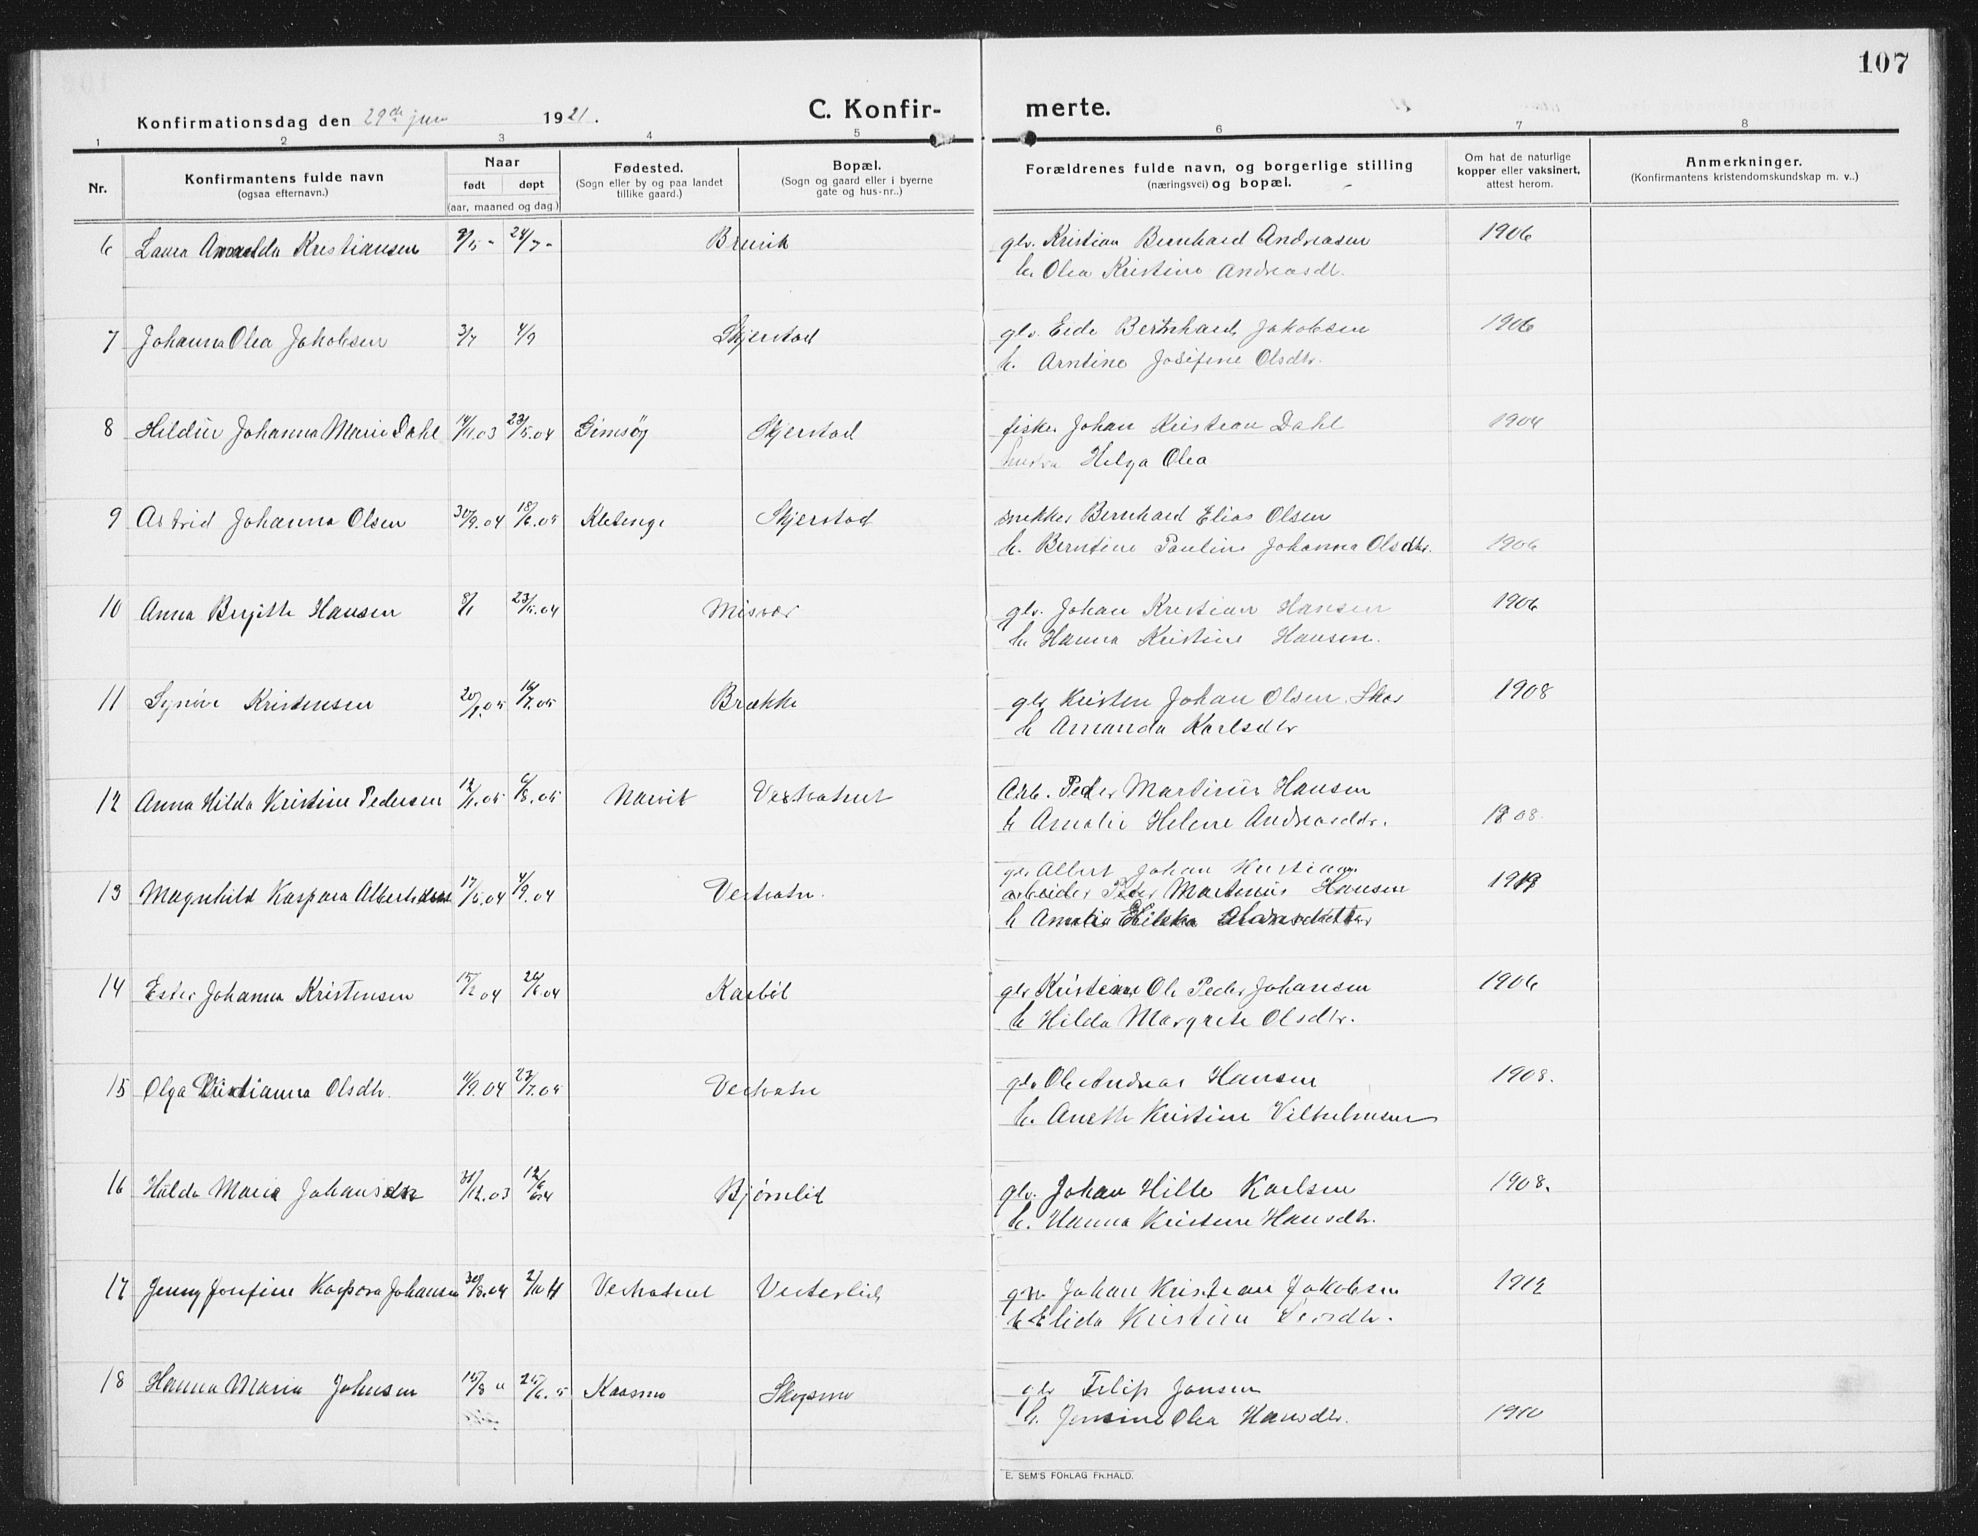 107
Konfirmationsdag den 29de juni 1921.
C. Konfirmerte.
1 2 3 4 5 6 7 8
Nr.
Konfirmantens fulde navn
(ogsaa efternavn.)
Naar
født døpt
(aar, maaned og dag.)
Fødested.
(Sogn eller by og paa landet
tillike gaard.)
Bopæl.
(Sogn og gaard eller i byerne
gate og hus-nr..)
Forældrenes fulde navn, og borgerlige stilling
(næringsvei) og bopæl.
Om hat de naturlige
kopper eller vaksinert,
attest herom.
Anmerkninger.
(Konfirmantens kristendomskundskap m. v..)
6 Laura Amalda Kristiansen 9/5 - 24/7 - Bruvik gbr. Kristian Bernhard Andreasen 1906
h. Olea Kristine Andreasdtr.
7 Johanna Olea Jakobsen 3/7 4/9 Skjerstad gbr. Eide Bernhard Jakobsen 1906
h. Arntine Josefine Olsdtr.
8 Hildur Johanna Marie Dahl 14/11.03 23/5.04 Gimsøy Skjerstad fisker Johan Kristian Dahl 1904
hustru Helga Olea
9 Astrid Johanna Olsen 30/9.04 18/6.05 Kletenge Skjerstad snekker Bernhard Elias Olsen
h. Berntine Pauline Johanna Olsdtr. 1906
10 Anna Birgitte Hansen 8/1 23/5.04 Misvær gbr. Johan Kristian Hansen 1906
h. Hanna Kristine Hansen.
11 Synøve Kristensen 20/1.05 16/7.05 Brække gbr Kristen Johan Olsen. Skar 1908
h Amanda Karlsdtr
12 Anna Hilda Kristine Pedersen 12/1.05 6/8.05 Narvik Vestvatnet Arb. Peder Martinus Hansen
h Amalie Helene Andreasdtr. 1908.
13 Magnhild Kaspara Albertsen 17/5.04 4/9.04 Vestvatn. gbr Albert Johan Kristians
arbeider Peder Martinus Hansen 1919
h Amalie
14 Ester Johanna Kristensen 15/2 04 26/6.04 Karbøl gbr Kristian Ole Peder Johansen 1906
h Hilda Margrete Olsdtr.
15 Olga Kristianna Olsdtr. 11/9.04 23/7.05 Vestvatn gbr Ole Andreas Hansen 1908.
h. Aneth Kristine Vilhelmsen
16 Hilda Maria Johansdtr 31/12.03 12/6 04 Bjørnlid gbr. Johan Hilte Karlsen 1908.
h. Hanna Kristine Hansdtr.
17 Jenny Josefine Kaspara Johansen 30/8.04 2/10 4 Vestvatnet Vesterlid gm. Johan Kristian Jakobsen 1912
h Elida Kristine
18 Hanna Maria Johnsen 15/8 " 25/6. 5 Kaasmo Skogsmo gbr Filip Jonsen
h. Jensine Olea Hansdtr. 1910
E. SEM'S FORLAG FR.HALD.